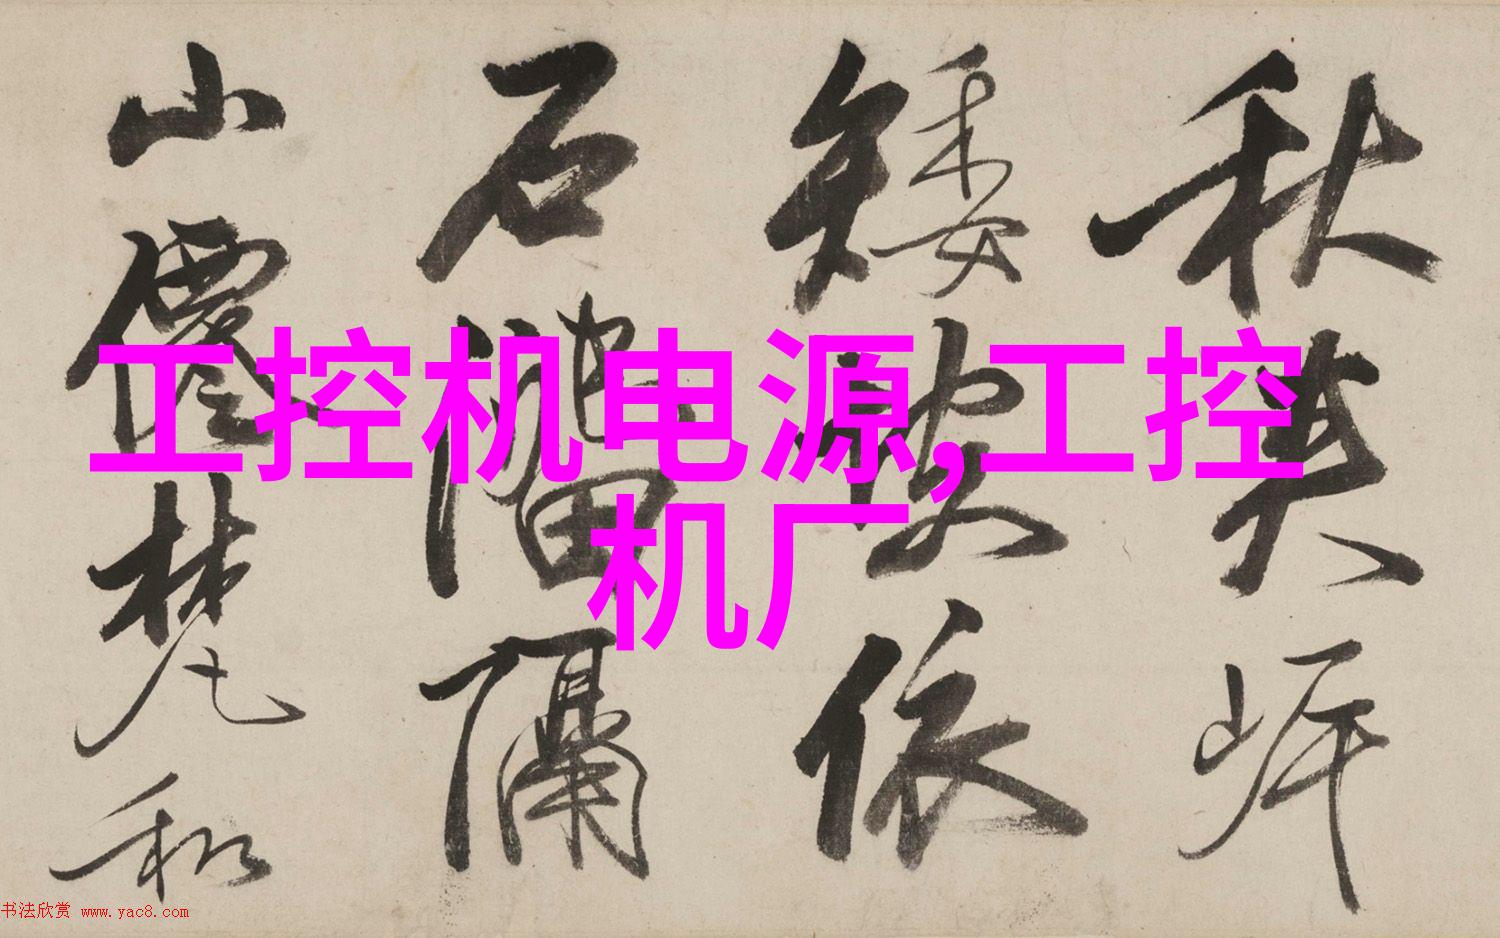 工控机电源,工控
机厂
秋
矮依
石隔
山僊梵和
书法欣赏 www.yac8.com